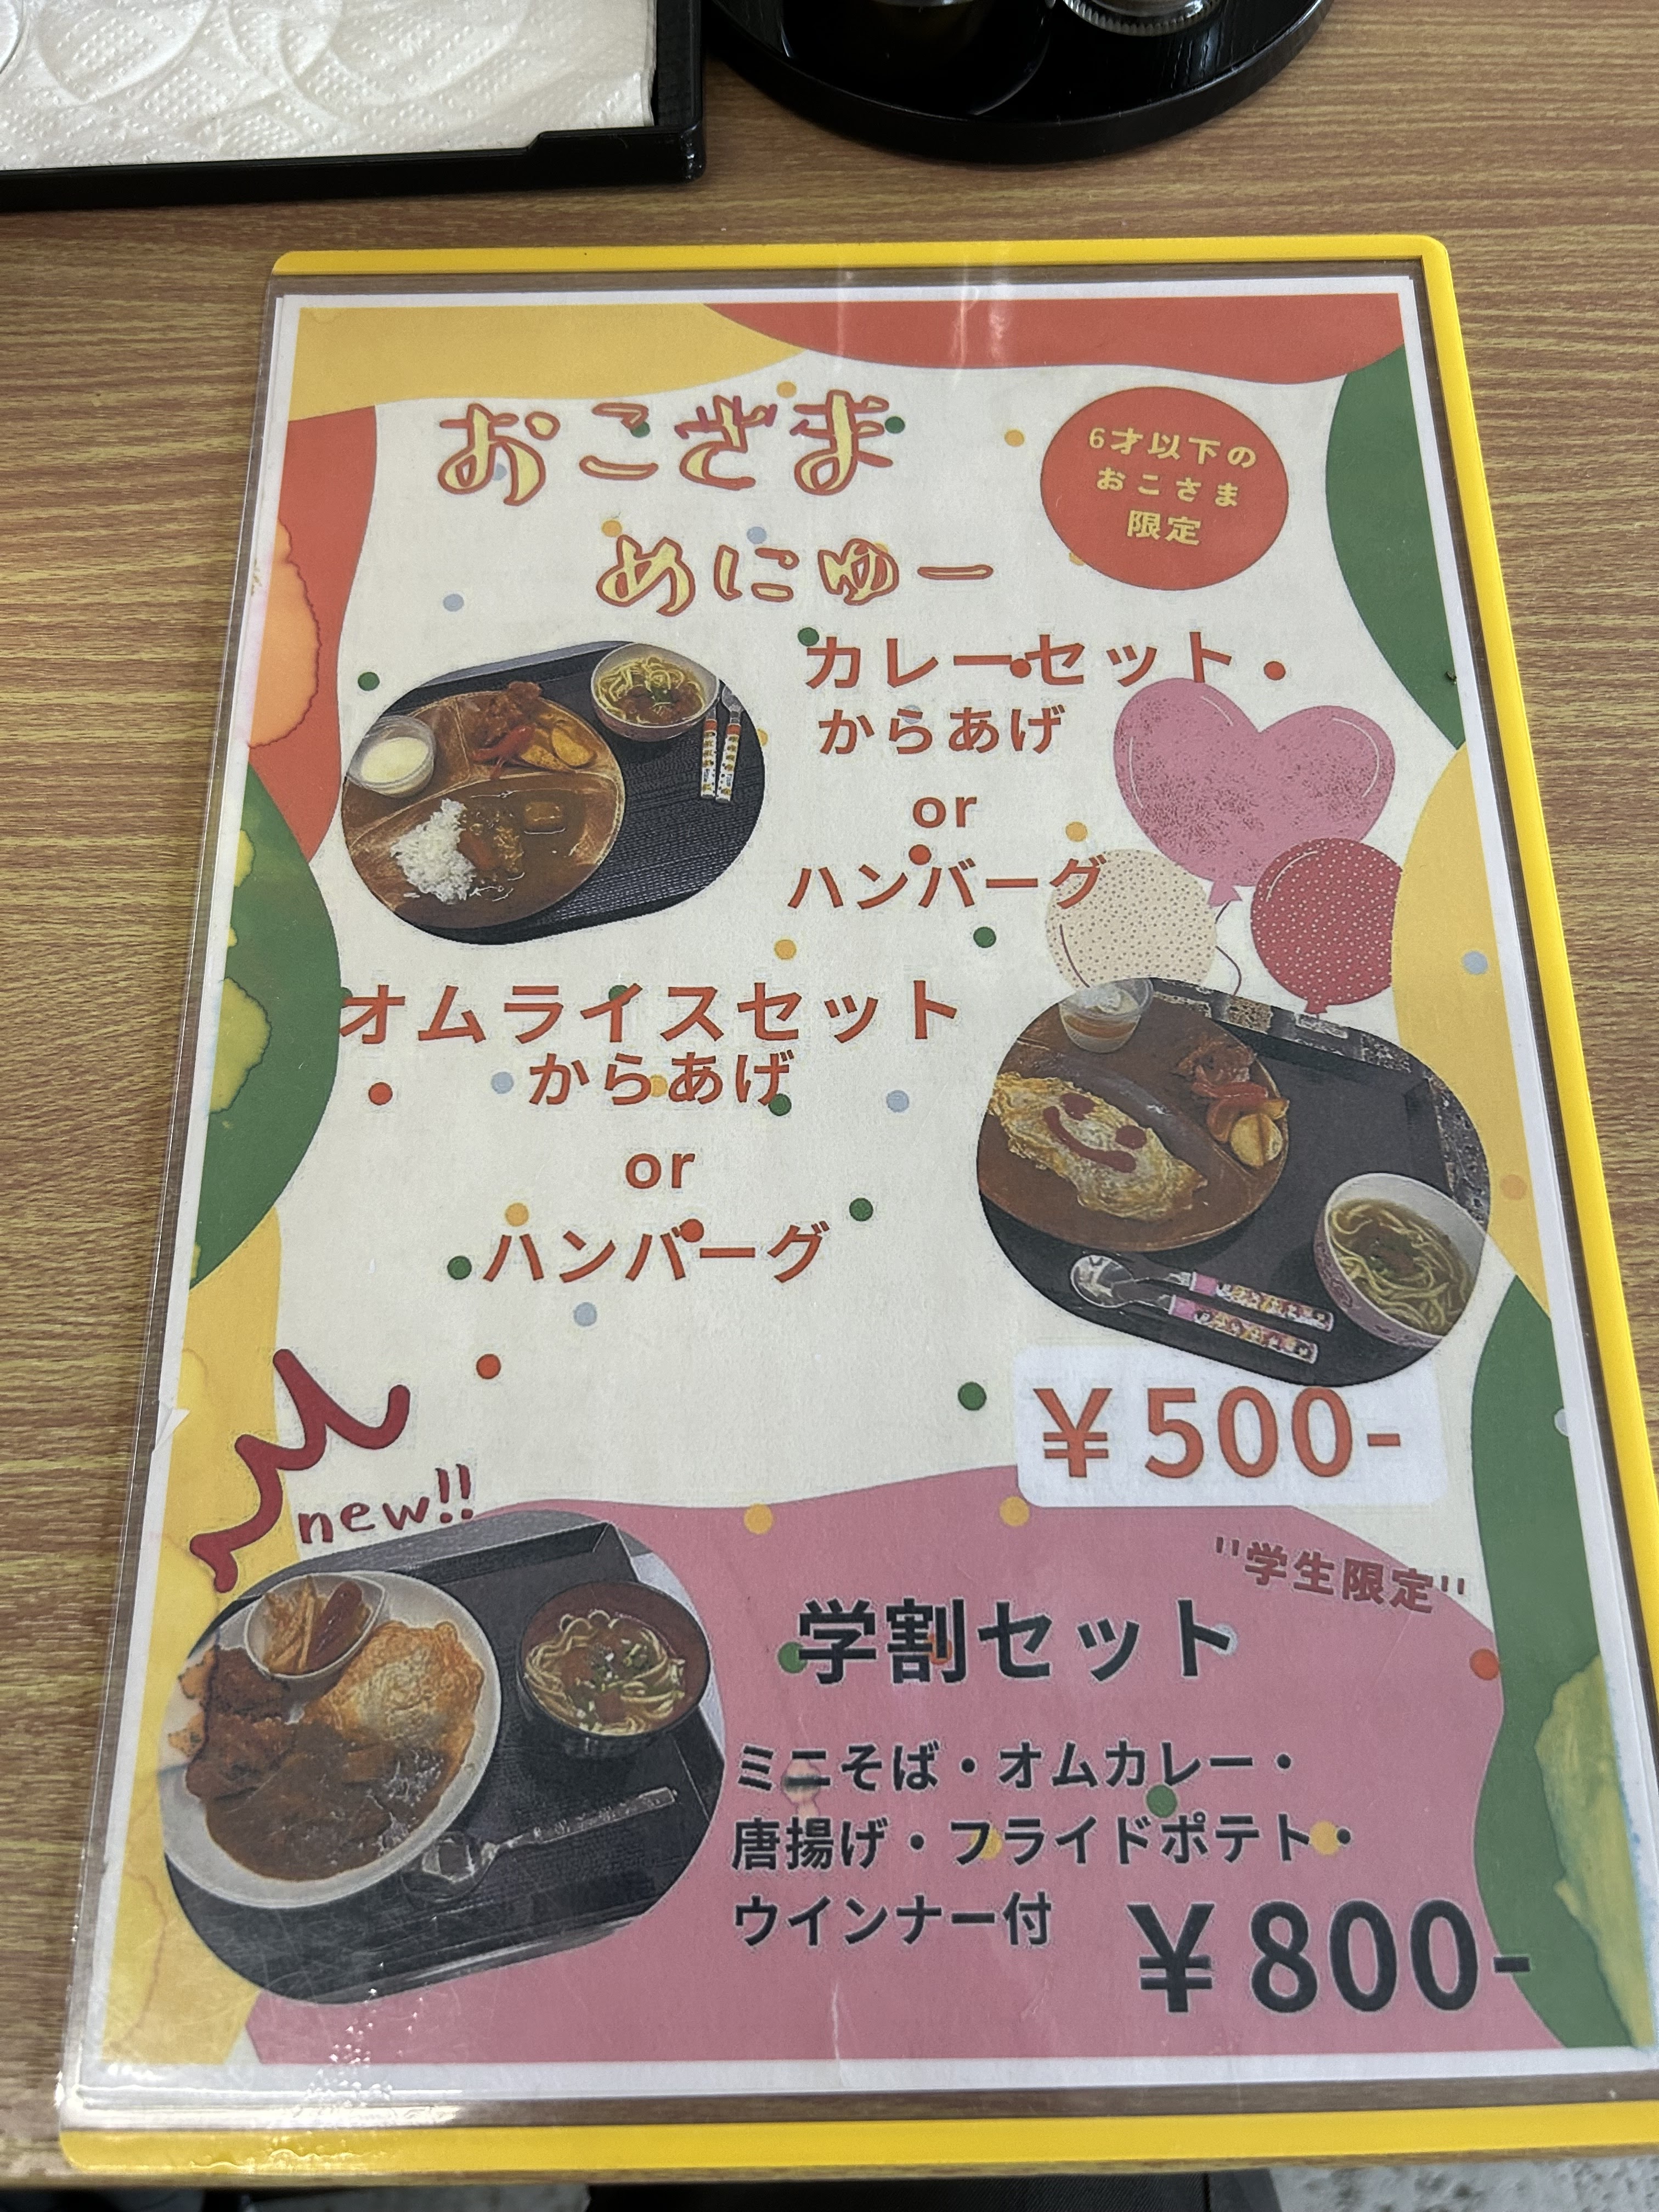 おこさま
めにゅー
6才以下の
おこさま
限定
カレーセット
からあげ
or
ハンバーグ
オムライスセット
からあげ
or
ハンバーグ
¥500-
new!!
"学生限定"
学割セット
ミニそば・オムカレー・
唐揚げ・フライドポテト・
ウインナー付
¥800-